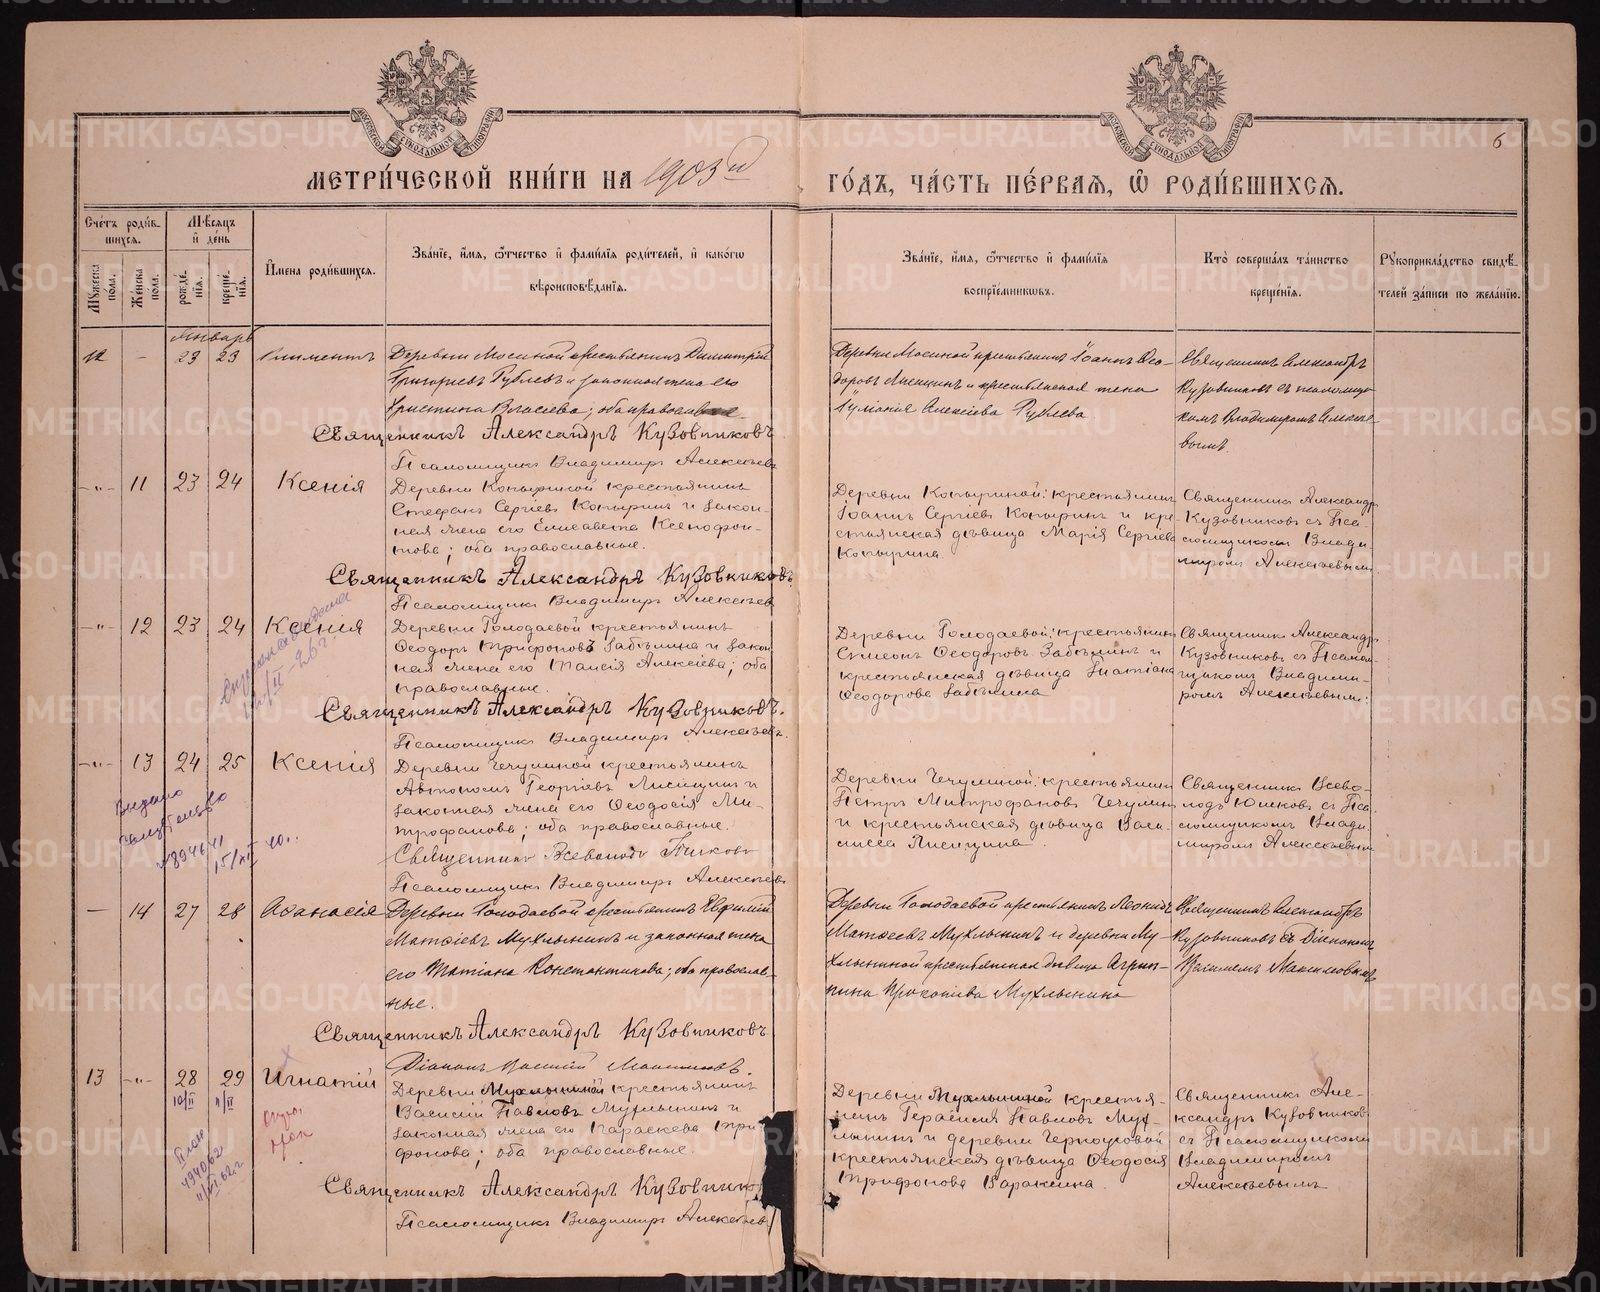 МЕТРИ́ЧЕСКОЙ КНИ́ГИ НА 1903й ГО́ДЪ, ЧА́СТЬ ПЕ́РВАЯ, Ѿ РОДИ́ВШИХСЯ.
6
Сче́тъ роди́в-
шихся.
Мужеска по́ла.
Же́нска по́ла.
Мѣ́сяцъ
и де́нь
рожде́нїя.
креще́нїя.
И҆мена роди́вшихся.
Зва́нїе, и҆́мя, ѻ҆́тчество и҆ фами́лїя роди́телей, и҆ како́гѡ
вѣроисповѣ́данїя.
Зва́нїе, и҆́мя, ѻ҆́тчество и҆ фами́лїя
воспрїе́мниковъ.
Кто̀ соверша́лъ та́инство
креще́нїя.
Рукоприкла́дство свидѣ́-
телей за́писи по жела́нїю.
Январь
12 - 23 23 Климентъ
Деревни Мосиной крестьянинъ Димитрій
Григорьевъ Рублевъ и законная жена его
Христина Власіева; оба православные
Священникъ Александръ Кузовниковъ.
Псаломщикъ Владимиръ Алексѣевъ
Деревни Мосиной крестьянинъ Іоаннъ Ѳео-
доровъ и крестьянская жена
Іуліанія Алексіева Рублева
Священникъ Александръ
Кузовниковъ съ псаломщи-
комъ Владимиромъ Алексѣе-
вымъ.
-„- 11 23 24 Ксенія
Деревни Копыриной крестьянинъ
Стефанъ Сергіевъ Копыринъ и закон-
ная жена его Елисавета Ксенофон-
това; оба православные.
Священникъ Александръ Кузовниковъ.
Псаломщикъ Владимиръ Алексѣевъ
Деревни Копыриной: крестьянинъ
Іоаннъ Сергіевъ Копыринъ и кре-
стьянская дѣвица Марія Сергіева
Копырина.
Священникъ Александръ
Кузовниковъ съ Пса-
ломщикомъ Влади-
миромъ Алексѣевымъ
-„- 12 23 24 Ксенія
Деревни Голодаевой крестьянинъ
Ѳеодоръ Трифоновъ Забѣлинъ и закон-
ная жена его Таисія Алексіева; оба
православные.
Священникъ Александръ Кузовниковъ.
Псаломщикъ Владимиръ Алексѣевъ.
Деревни Голодаевой: крестьянинъ
Симеонъ Ѳеодоровъ Забѣлинъ и
крестьянская дѣвица Татіана
Ѳеодорова Забѣлина
Священникъ Александръ
Кузовниковъ съ Псалом-
щикомъ Владими-
ромъ Алексѣевымъ.
-„- 13 24 25 Ксенія
Выдано
№894641
15/XII 40г.
Деревни Чечулиной крестьянинъ
Автономъ Георгіевъ Лисицинъ и
законная жена его Ѳеодосія Ми-
трофанова; оба православные.
Священникъ Всеволодъ
Псаломщикъ Владимиръ Алексѣевъ
Деревни Чечулиной: крестьянинъ
Петръ Митрофановъ Чечулинъ
и крестьянская дѣвица Васи-
лисса Лисицина.
Священникъ Всево-
лодъ съ Пса-
ломщикомъ Влади-
миромъ Алексѣевымъ
- 14 27 28 Аѳанасія
Деревни Голодаевой крестьянинъ Евфимій
Матѳіевъ Мухлынинъ и законная жена
его Татіана Константинова; оба православ-
ные.
Священникъ Александръ Кузовниковъ
Діаконъ Василій Максимовъ.
Деревни Голодаевой крестьянинъ Леонидъ
Матѳеевъ Мухлынинъ и деревни Му-
хлыниной крестьянская дѣвица Агрип-
пина Прокопіева Мухлынина
Священникъ Александръ
Кузовниковъ съ Діакономъ
Василіемъ Максимовымъ
13 -„- 28 29 Игнатій
10/II 11/II
Деревни Мухлыниной крестьянинъ
Василій Павловъ Мухлынинъ и
законная жена его Параскева Три-
фонова; оба православные.
Священникъ Александръ Кузовнико
Псаломщикъ Владимиръ Алексѣевъ
Деревни Мухлыниной крестья-
нинъ Герасимъ Павловъ Мух-
лынинъ и деревни Черноусовой
крестьянская дѣвица Ѳеодосія
Трифонова Вараксина.
Священникъ Але-
ксандръ Кузовниковъ
съ Псаломщикомъ
Владимиромъ
Алексѣевымъ
METRIKI.GASO-URAL.RU